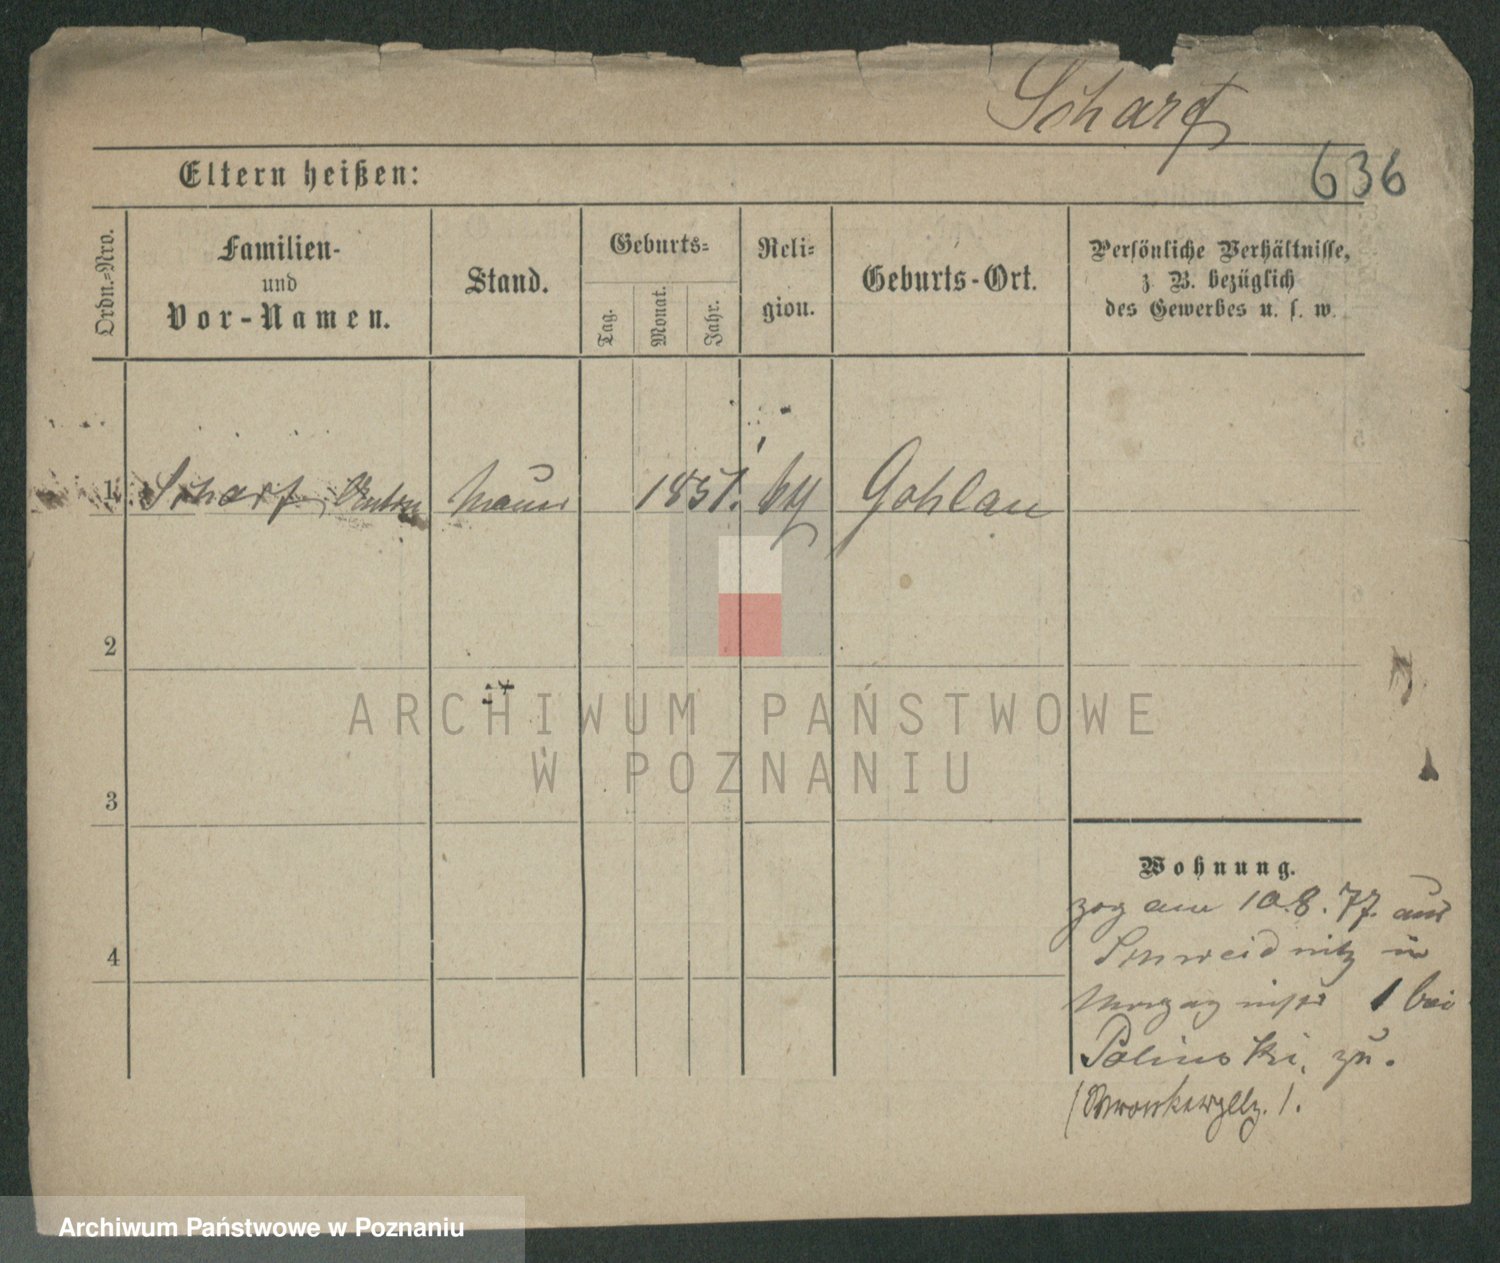 Scharf
636
Eltern heißen:
Ordn.-Nro.
Familien-
und
Vor-Namen.
Stand.
Geburts-
Tag.
Monat.
Jahr.
Reli-
gion.
Geburts-Ort.
Persönliche Verhältnisse,
z. B. bezüglich
des Gewerbes u. s. w.
1 Scharf, Anton Maurer 1851. Gohlau
2
3
4
Wohnung.
zog am 10.8.77. aus
Schweidnitz in
1 bei
Polinski, zu.
ARCHIWUM PAŃSTWOWE
W POZNANIU
Archiwum Państwowe w Poznaniu